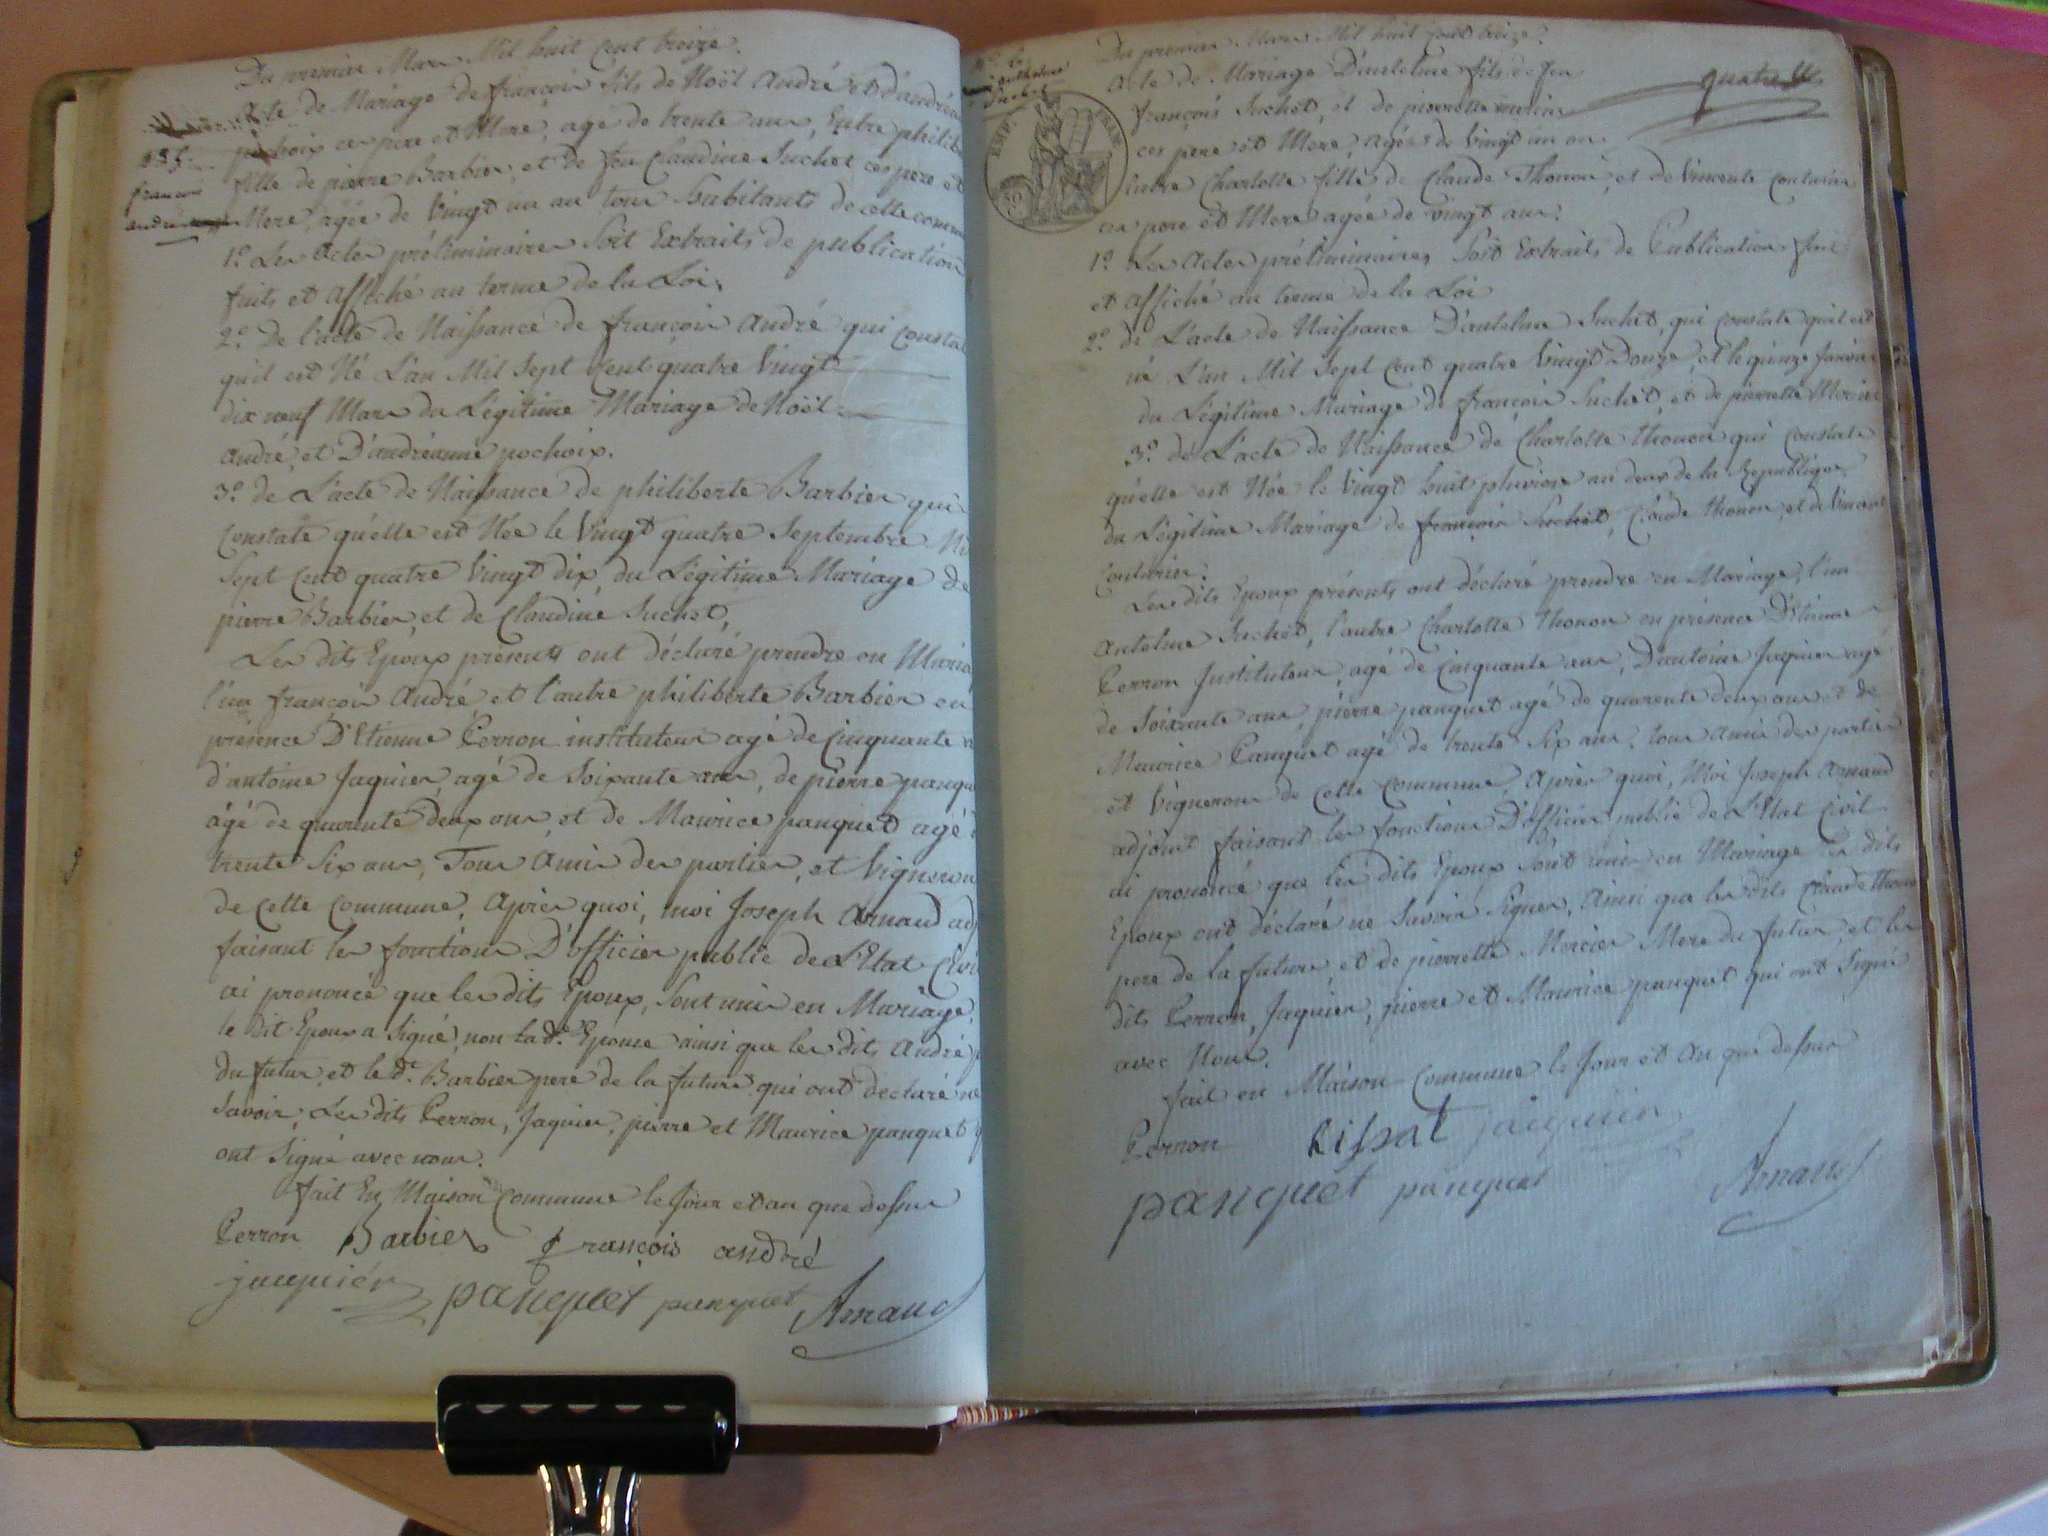 Du premier Mars Mil huit Cent treize.
Acte de Mariage de françois fils de Noël André et d'andréa
pochoix ces pere et Mere, agé de trente ans, Entre philibe
fille de pierre Barbier, et de feu Claudine Suchet ces pere et
Mere, agée de Vingt un an tous habitants de cette comm
françois
andré
1º Les Actes préliminaires Soit Extraits de publication
faits et affiché au terme de la Loi.
2º de l'acte de Naissance de françois André qui Consta
quil est Né L'an Mil Sept Cent quatre Vingt
dix neuf Mars du Légitime Mariage de Noël
André, et D'andréanne pochoix.
3º de L'acte de Naissance de philiberte Barbier qui
Constate quélle est Née le Vingt quatre Septembre Mi
Sept Cent quatre Vingt dix, du Légitime Mariage de
pierre Barbier, et de Claudine Suchet,
Les dits Epoux présents ont déclaré prendre en Maria
l'un françois André et l'autre philiberte Barbier en
présence D'Etienne Perron instituteur agé de Cinquante
d'antoine Jaquier, agé de Soixante ans, de pierre panqu
âgé de quarente deux ans, et de Maurice panquet agé
trente Six ans, Tous Amis des parties, et Vigneron
de Cette Commune, Après quoi, moi Joseph Arnaud adj
faisant les fonctions D'officier public de L'Etat Civi
ai prononcé que les dits Epoux, Sont unis en Mariage,
le Dit Epoux a Signé, non la de. Epouse ainsi que les dits André p
du futur, et le dt. Barbier pere de la future qui ont declaré ne
Savoir, Les dits Perron, Jaquier, pierre et Maurice panquet q
ont Signé avec nous.
fait En Maison Commune le Jour et an que dessus
Perron Barbier françois andré
jacquiér panquet panquet Arnaud
Du premier Mars Mil huit Cent treize.
Suchet
Acte de Mariage D'antelme fils de feu
quatre
françois Suchet, et de pierrette mercier
ces pere et Mere, agé de Vingt un an
Entre Charlotte fille de Claude Thonon, et de Vincente Couturier
ces pere et Mere agée de vingt ans.
ESP. FRAN.
1º Les Actes préliminaires Soit Extraits de Publication fait
et affiché au terme de la Loi
2º de L'acte de Naissance D'antelme Suchet, qui Constate quil est
né L'an Mil Sept Cent quatre Vingt Douze, et le quinze Janvier
du Légitime Mariage de françois Suchet, et de pierrette Mercier
3º de L'acte de Naissance de Charlotte thonon qui Constate
quélle est Née le Vingt huit pluviose an deux de la République
du Légitime Mariage de françois Suchet, Claude thonon, et de Vincente
Couturier.
Les dits Epoux présents ont déclaré prendre en Mariage, l'un
Antelme Suchet, l'autre Charlotte thonon en présence D'Etienne
Perron Instituteur, agé de Cinquante ans, D'antoine Jaquier agé
de Soixante ans, pierre panquet agé de quarente deux ans et de
Maurice Panquet agé de trente Six ans, tous amis des parties
et Vignerons de Cette Commune, Après quoi, Moi Joseph Arnaud
adjoint faisant les fonctions D'officier public de L'Etat Civil
ai prononcé que les dits Epoux Sont unis en Mariage les dits
Epoux ont déclaré ne Savoir Signer, Ainsi que les dits Claude thonon
pere de la future, et de pierrette Mercier Mere du futur, et les
dits Perron, Jaquier, pierre et Maurice panquet qui ont Signé
avec Nous.
fait en Maison Commune le Jour et An que dessus
Perron jacquier
panquet panquet Arnaud